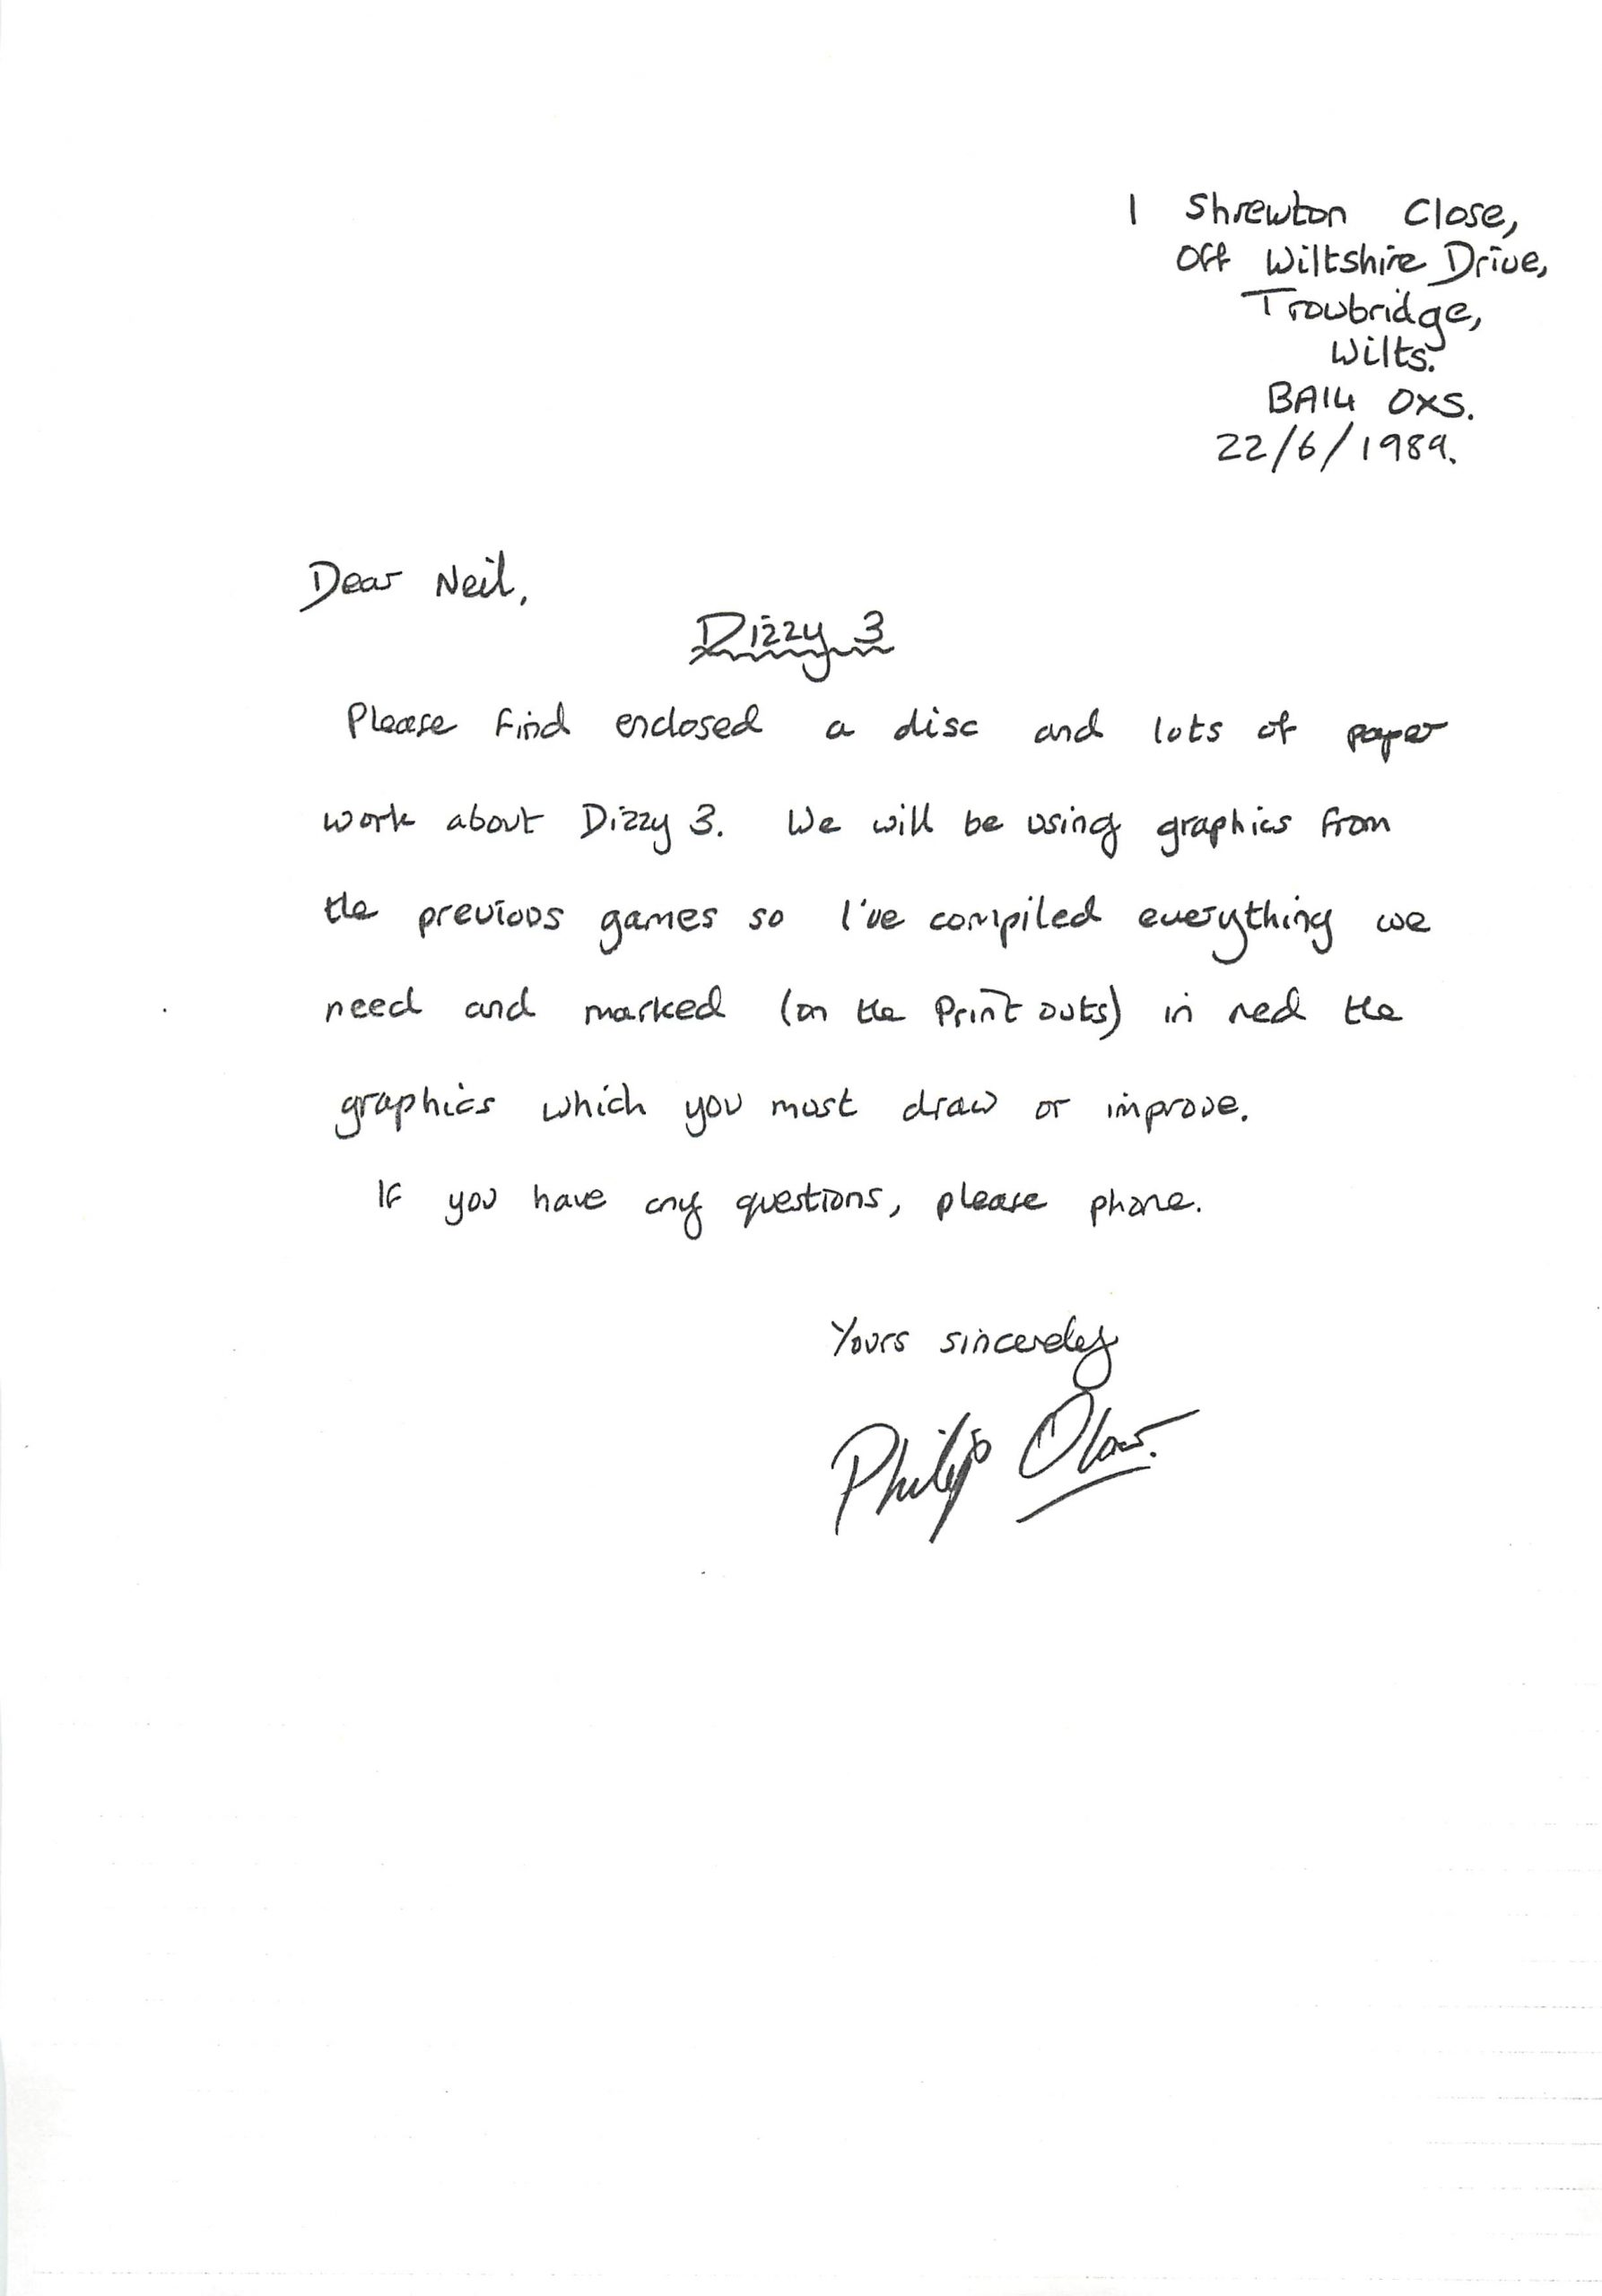 1 Shrewton Close,
Off Wiltshire Drive,
Trowbridge,
Wilts.
BA14 0XS.
22/6/1989.
Dear Neil,
Dizzy 3
Please find enclosed a disc and lots of paper
work about Dizzy 3. We will be using graphics from
the previous games so I've compiled everything we
need and marked (on the Print outs) in red the
graphics which you must draw or improve.
If you have any questions, please phone.
Yours sincerely
Philip Oliver.